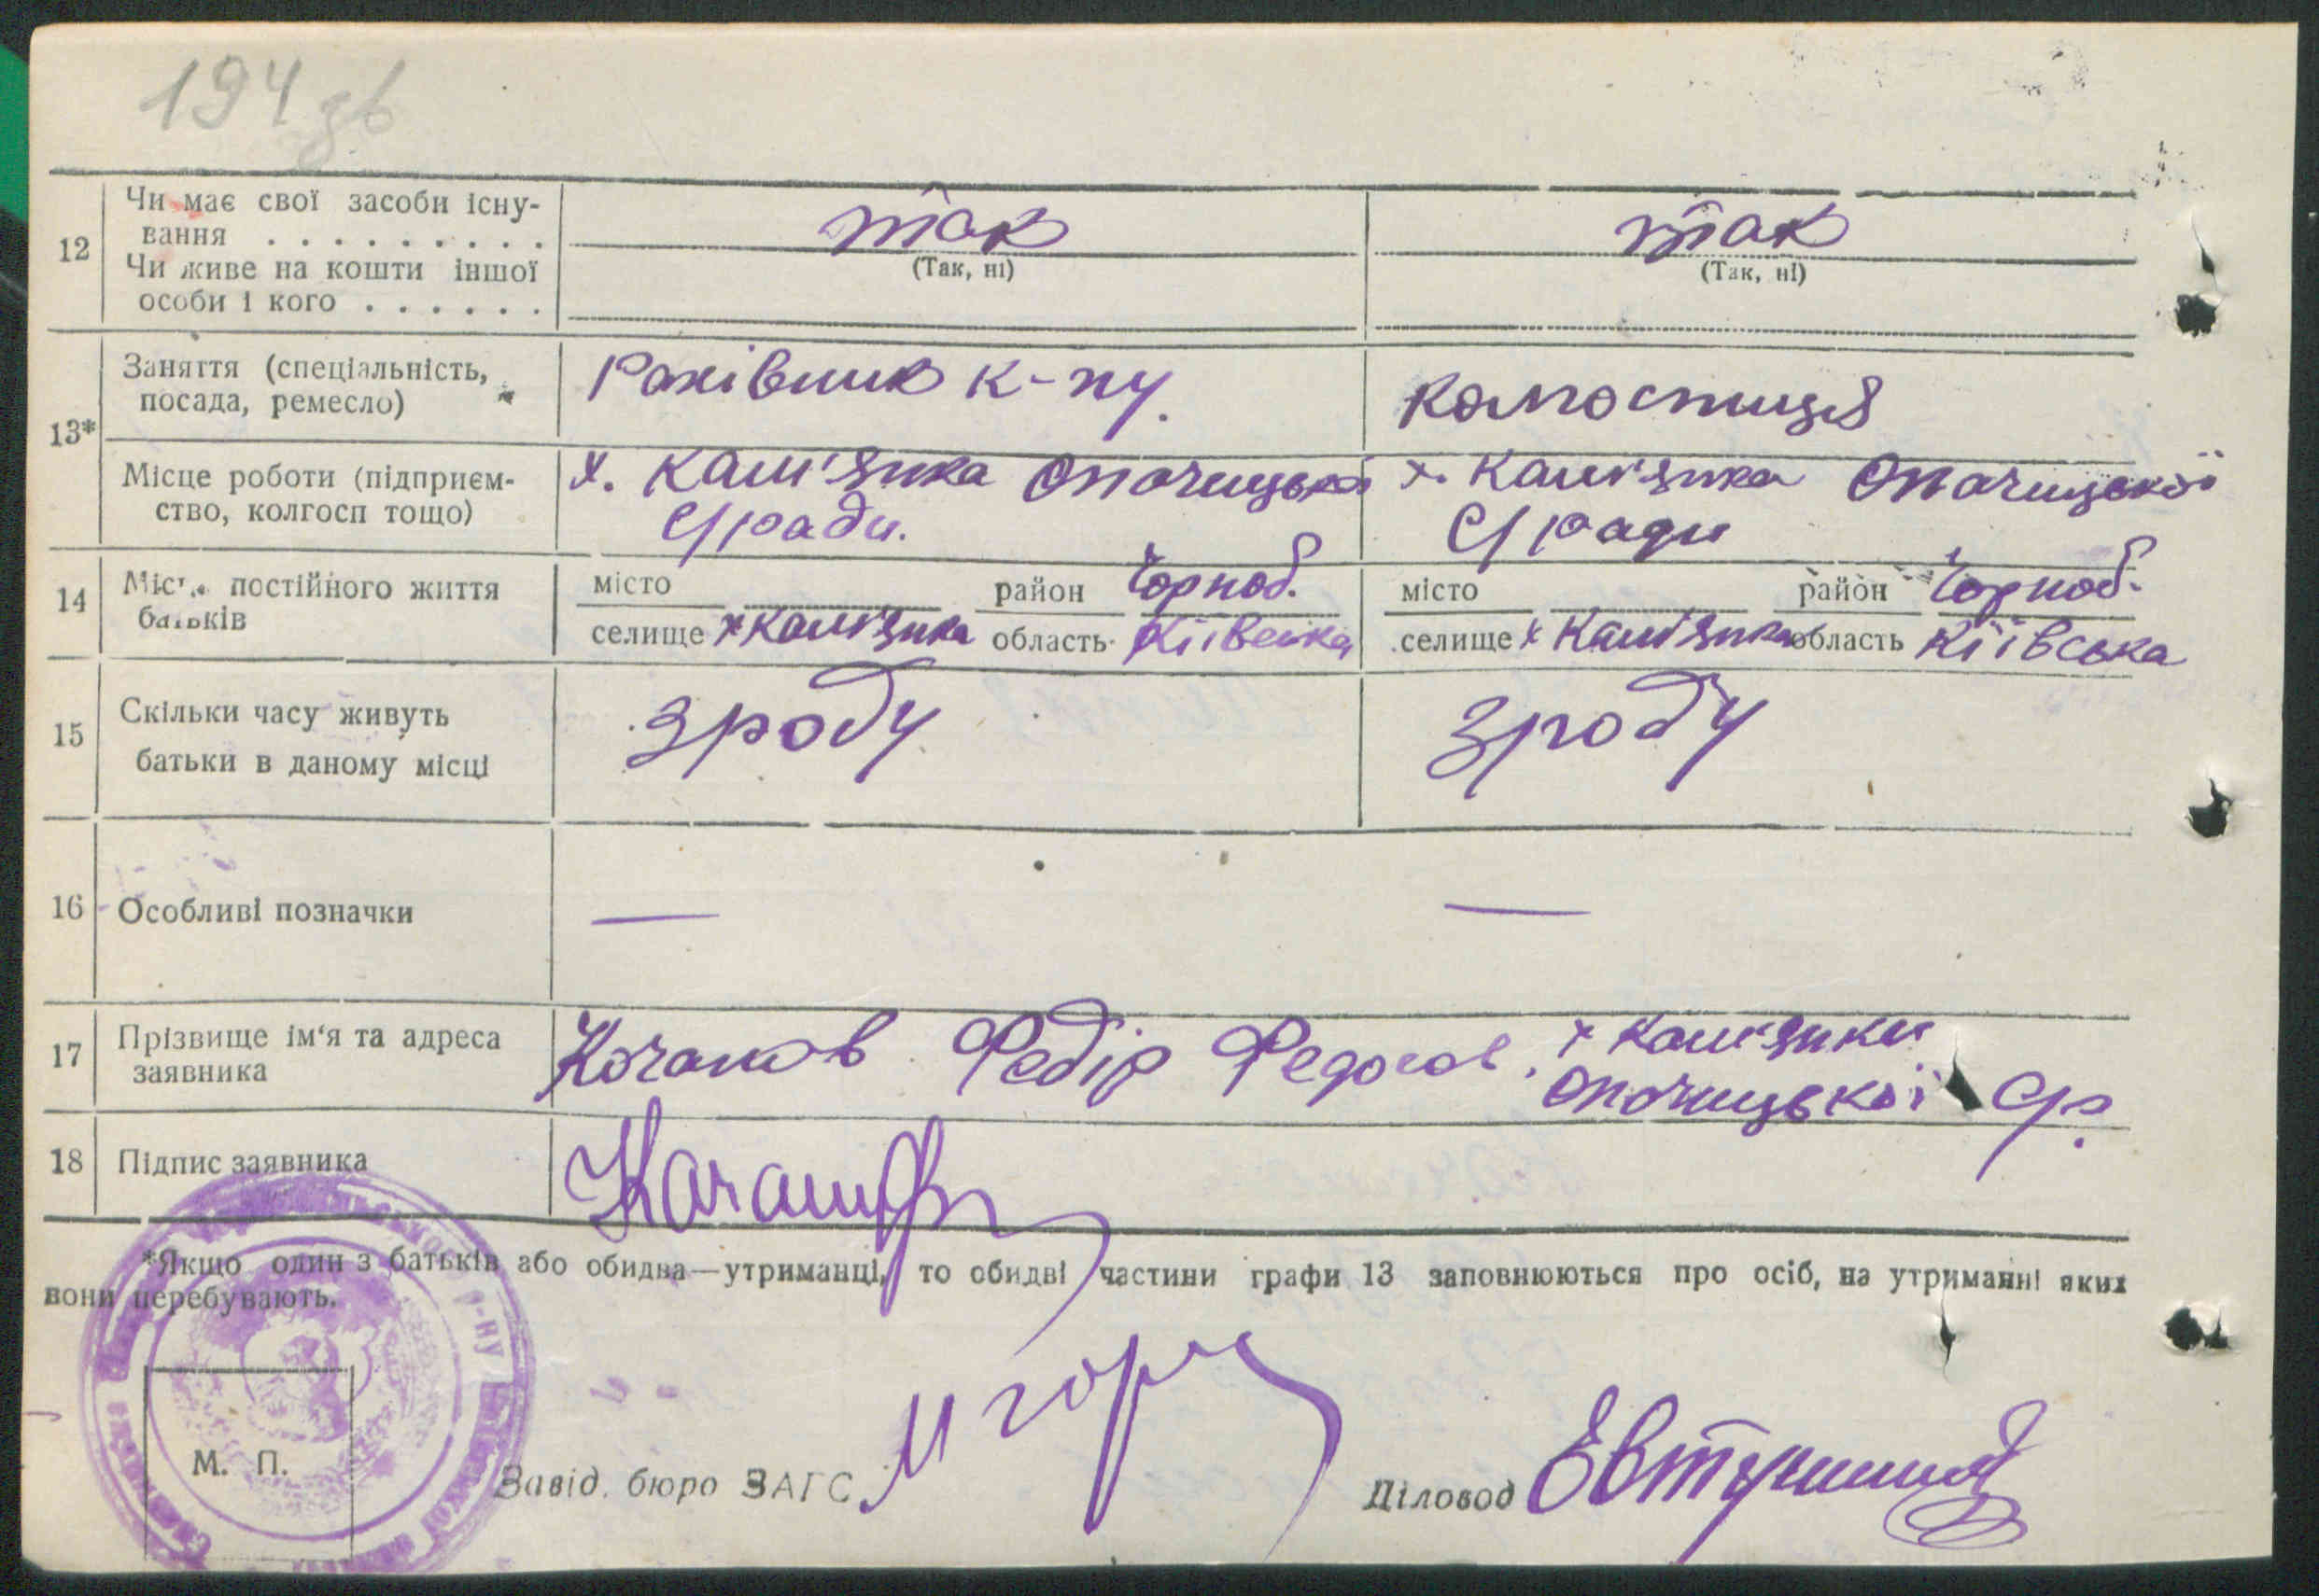 194 зв
12 Чи має свої засоби існу-
вання . . . . . . . . . так так
(Так, ні) (Так, ні)
Чи живе на кошти іншої
особи і кого . . . . . .
13* Заняття (спеціальність,
посада, ремесло) Рахівник к-пу. колгоспниця
Місце роботи (підприєм-
ство, колгосп тощо) х. Кам'янка Опачицької х. Кам'янка Опачицької
С/ради. С/ради
14 Місце постійного життя
батьків місто район Чорноб. місто район Чорноб.
селище х Кам'янка область Київська селище х Кам'янка область Київська
15 Скільки часу живуть
батьки в даному місці зроду зроду
16 Особливі позначки — —
17 Прізвище ім'я та адреса
заявника Федір Федосов. х Кам'янки
Опачицької С/р.
18 Підпис заявника
*Якщо один з батьків або обидва—утриманці, то обидві частини графи 13 заповнюються про осіб, на утриманні яких
вони перебувають.
М. П.
Завід. бюро ЗАГС
Діловод